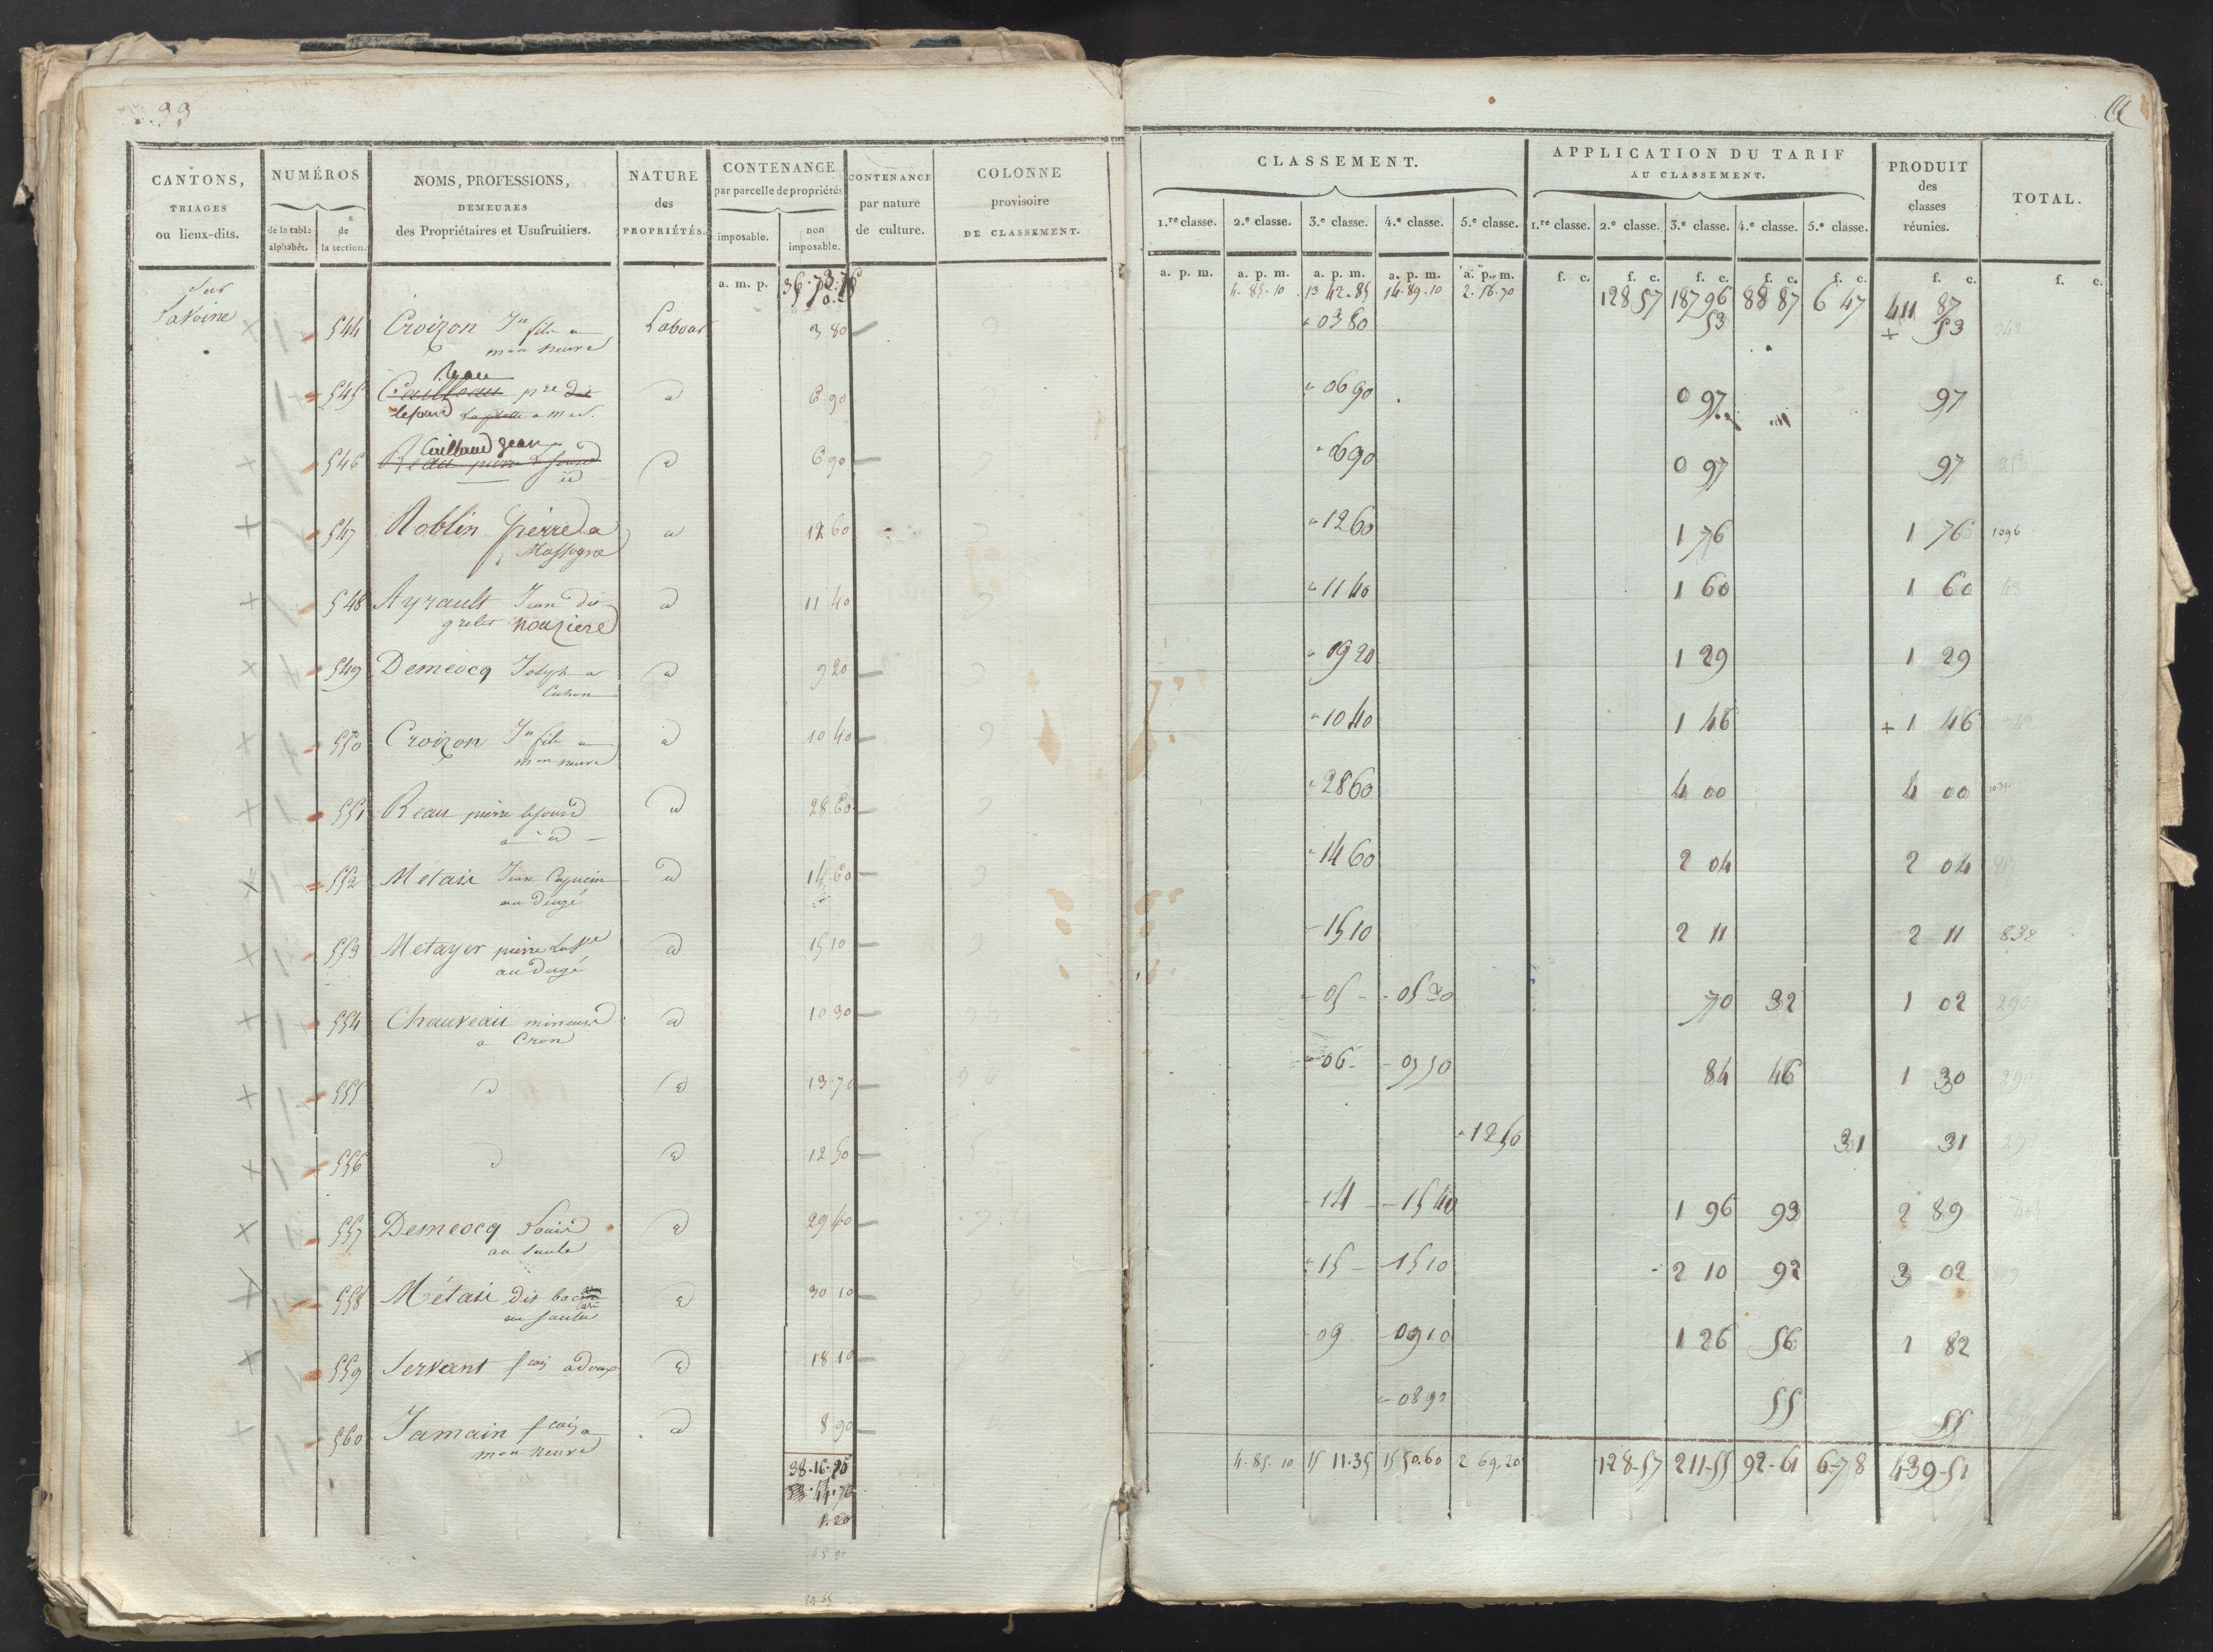 33
CANTONS,
TRIAGES
ou lieux-dits.
NUMÉROS
de la table alphabét.
de la section.
NOMS, PROFESSIONS,
DEMEURES
des Propriétaires et Usufruitiers.
NATURE
des
PROPRIÉTÉS.
CONTENANCE
par parcelle de propriétés
imposable.
non imposable.
CONTENANCE
par nature
de culture.
COLONNE
provisoire
DE CLASSEMENT.
CLASSEMENT.
1.re classe. 2.e classe. 3.e classe. 4.e classe. 5.e classe.
APPLICATION DU TARIF
AU CLASSEMENT.
1.re classe. 2.e classe. 3.e classe. 4.e classe. 5.e classe.
PRODUIT
des
classes
réunies.
TOTAL.
a. m. p.
a. p. m. a. p. m. a. p. m. a. p. m. a. p. m. f. c. f. c. f. c. f. c. f. c. f. c. f. c.
4. 85. 10 13 42. 85 14. 89. 10 2. 56. 70 128 57 187 96 88 87 6 47 411 87
544 Croizon Jn fils a Labour 3 80 03 80 53 + 53
mon neuve
Reau
545 Cailleau pre dit d 6 90 06 90 0 97 97
lesourd
Caillaud Jean
546 Reau pierre lesourd d 6 90 06 90 0 97 97
id
547 Roblin pierre a d 12 60 12 60 1 76 1 76 1096
Massogne
548 Ayrault Jean dit d 11 40 11 40 1 60 1 60
grelet nouziere
549 Demeocq Joseph a d 9 20 09 20 1 29 1 29
Cuhon
550 Croizon Jn fils a d 10 40 10 40 1 46 + 1 46
mon neuve
551 Reau pierre lesourd d 28 60 28 60 4 00 4 00
a id
552 Métais Jean d 14 60 14 60 2 04 2 04
au Dugé
553 Metayer pierre d 15 10 15 10 2 11 2 11 838
au Dugé
554 Chauveau mineurs d 10 30 05 05 30 70 32 1 02 290
a Cron
555 d d 13 70 06 07 70 84 46 1 30 290
556 d d 12 50 12 50 31 31
557 Demeocq Louis d 29 40 14 15 40 1 96 93 2 89
au saule
558 Métais dit d 30 10 15 15 10 2 10 92 3 02
au saule
559 Servant fcois a doux d 18 10 09 09 10 1 26 56 1 82
560 Jamain fcois a d 8 90 08 90 55 55
mon neuve
38. 16. 25 4. 85. 10 15 11. 35 15 50. 60 2 69. 20 128-57 211-55 92-61 6-78 439-51
1. 20